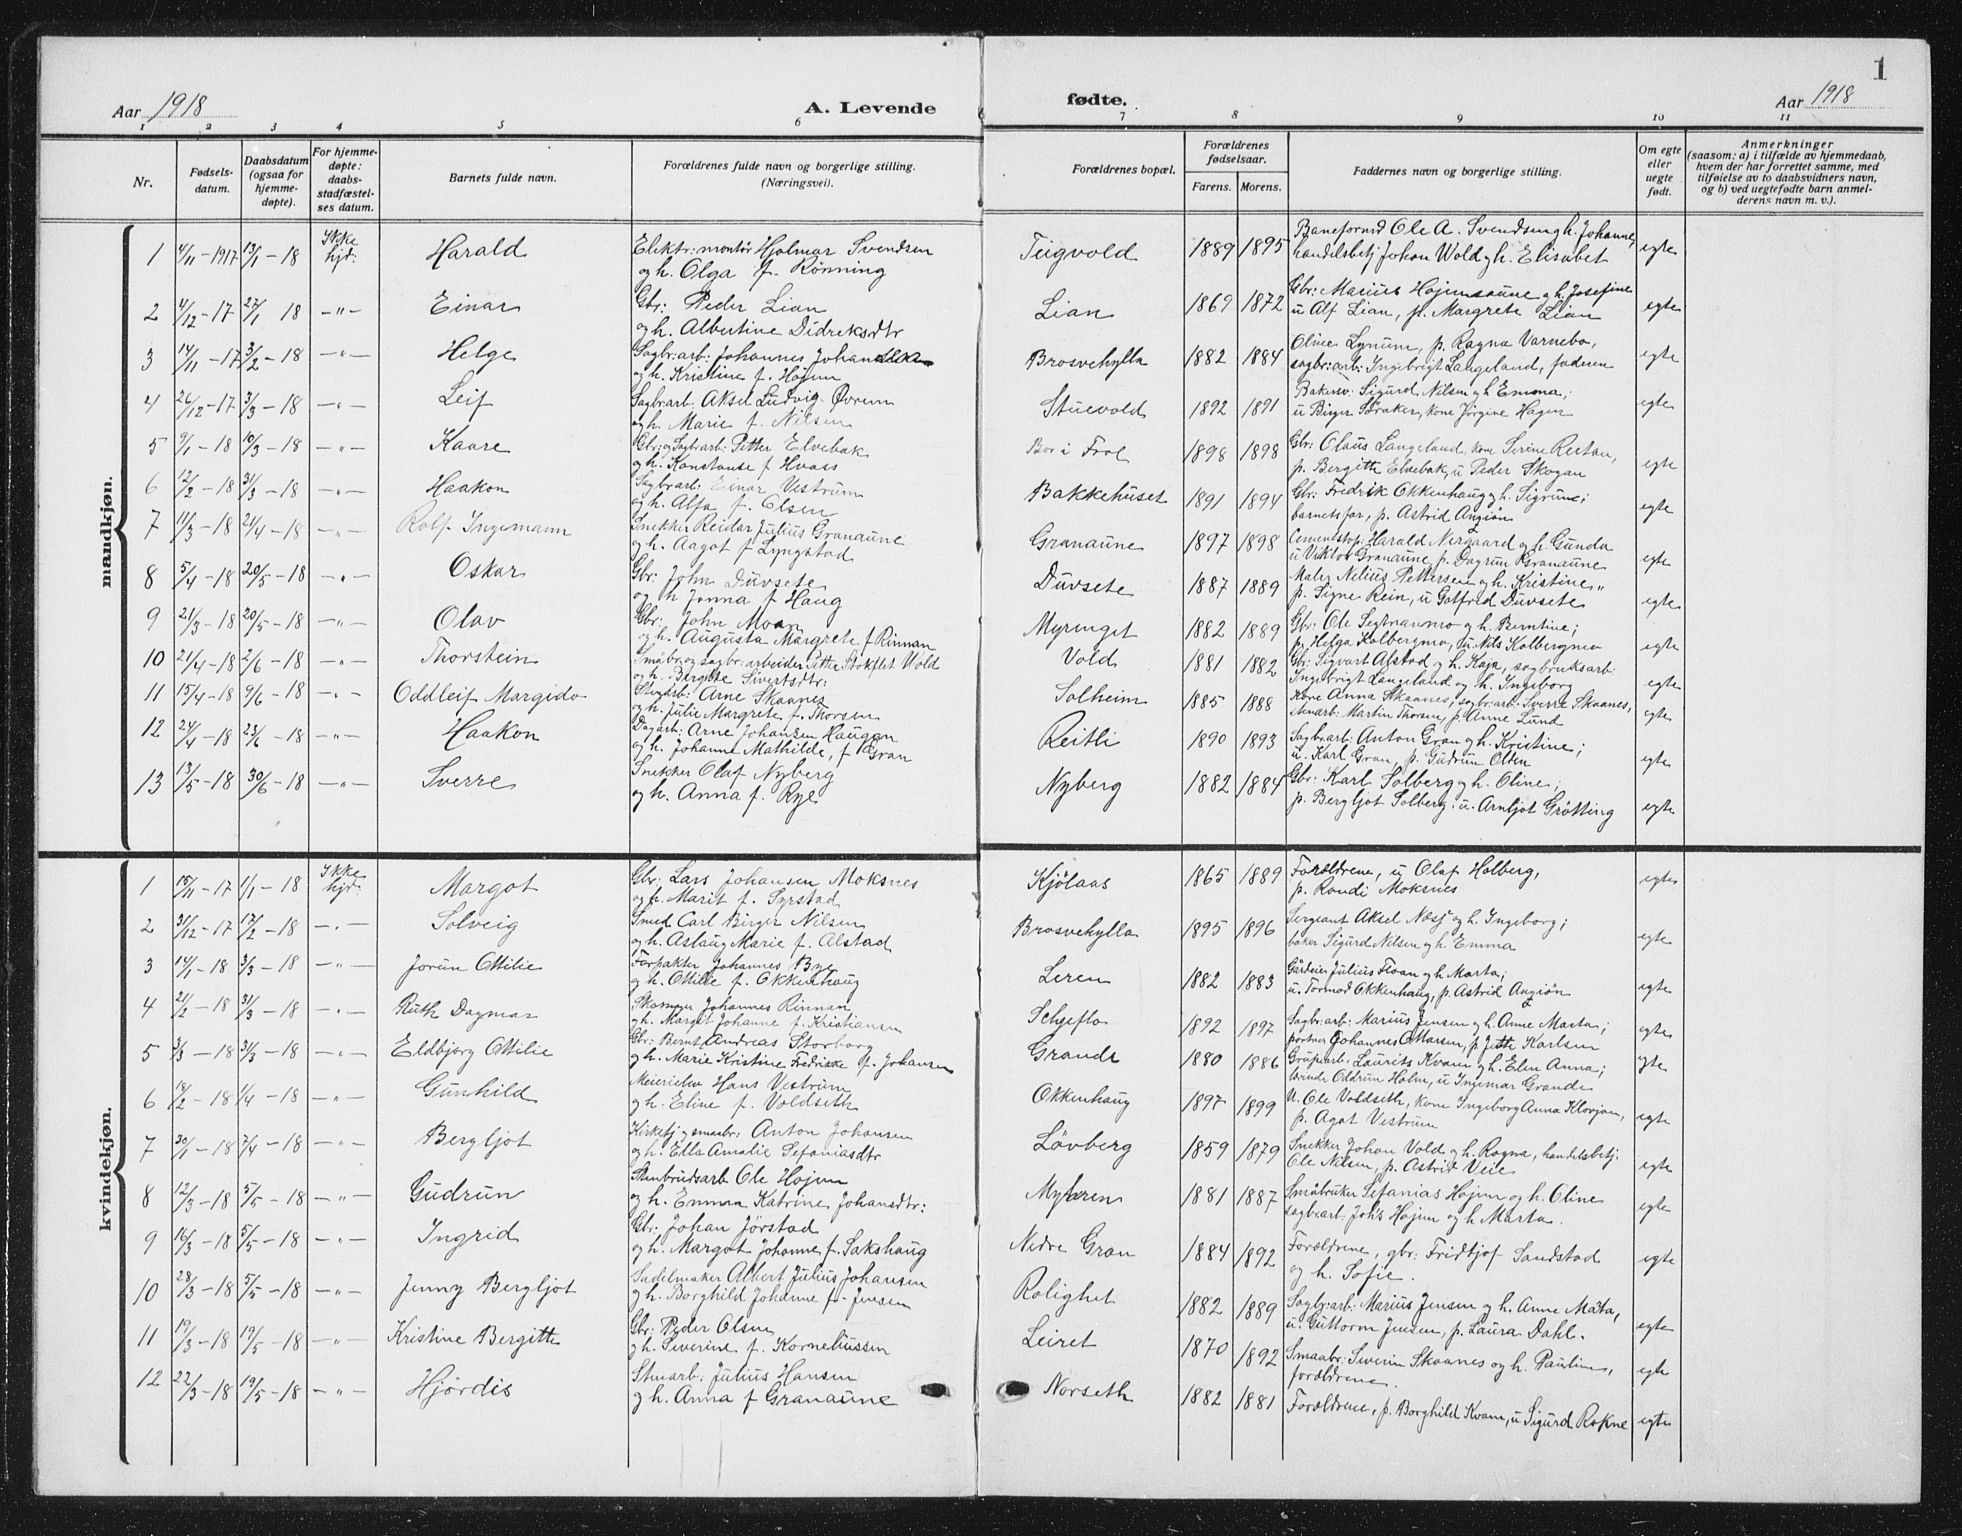 1
Aar 1918
A. Levende
fødte.
Aar 1918
1 2 3 4 5 6 7 8 9 10 11
Nr.
Fødsels-
datum.
Daabsdatum
(ogsaa for
hjemme-
døpte).
For hjemme-
døpte:
daabs-
stadfæstel-
ses datum.
Barnets fulde navn.
Forældrenes fulde navn og borgerlige stilling.
(Næringsvei).
Forældrenes bopæl.
Forældrenes
fødselsaar.
Farens. Morens.
Faddernes navn og borgerlige stilling.
Om egte
eller
uegte
født.
Anmerkninger
(saasom: a) i tilfælde av hjemmedaab,
hvem der har forrettet samme, med
tilføielse av to daabsvidners navn,
og b) ved uegtefødte barn anmel-
derens navn m. v.).
mandkjøn.
1 4/11-1917 13/1-18 Ikke hjd: Harald Elektr: montør Hjalmar Svendsen Tingvold 1889 1895 Baneformd Ole A. Svendsen g h. Johanne, egte
og h. Olga f. Rønning handelsbetj Johan Wold g h. Elisabet
2 4/12-17 27/1 18 -"- Einar Gbr: Peder Lian Lian 1869 1872 Gbr: Marius Hojemsaune g h. Josefine egte
og h. Albertine Didreksdtr u Alf Lian, p. Margrete Lian
3 14/11-17 3/2-18 -"- Helge Sagbr:arb: Johannes Johansen Brosvehylla 1882 1884 Oline Lynum, p. Ragna Varnebo, egte
og h. Kristine f. Højem sagbr:arb: Ingebrigt Langeland, faderen
4 26/12-17 3/3-18 -"- Leif Sagbr:arb: Aksel Ludvig Øvrem Stuevold 1892 1891 Bakersv: Sigurd Nilsen g h Emma; egte
og h. Marie f. Nilsen u Birger Søraker, kone Jørgine Hagen
5 9/1-18 10/3-18 -"- Kaare Gbr: og Sagbr:arb: Petter Elvebak Bor i Frol 1898 1898 Gbr: Olaus Langeland, kone Serine Restan, egte
og h. Konstanse f Hvaes p. Bergitte Elvebak, u Peder Skogan
6 12/2-18 31/3-18 -"- Haakon Sagbr:arb: Einar Vestrum Bakkehuset 1891 1894 Gbr: Fredrik Okkenhaug g h. Sigrune; egte
og h. Alfa f. Olsen barnets far, p. Astrid Anzjøn
7 11/3-18 21/4-18 -"- Rolf Ingemann Snekker Reidar Julius Granaune Granaune 1897 1898 Cementstøp: Harald Nergaard og h. Gunda egte
og h. Aagot f Lyngstad u Viktor Granaune, p. Dagrun Granaune
8 5/4-18 20/5-18 -"- Oskar Gbr: John Duvsete Duvsete 1887 1889 Maler Nilius Pettersen g h. Kristine egte
og h Jonna f Haug p. Signe Rein, u Gotfred Duvsete
9 21/3-18 20/5-18 -"- Olav Gbr: John Moan Myrenget 1882 1889 Gbr: Ole Segtnanmo g h. Berntine; egte
og h. Augusta Margrete f Rinnan p. Helga Kolbergmo, u. Nils Kolbergmo
10 21/4-18 2/6-18 -"- Thorstein Småbr: og sagbr: arbeider Petter Stokflet Vold Vold 1881 1882 Gbr: Sigvart Alstad g h. Kaja, sagbruksarb: egte
og h. Bergete Sivertsdtr: Ingebrigt Langeland og h. Ingeborg
11 15/4-18 9/6-18 -"- Oddleif Margido Stenarb: Arne Skaanes Solheim 1885 1888 Kone Anna Skaanes; sagbr:arb: Sverre Skaanes, egte
og h. Julie Margrete f. Thorsen stenarb: Martin Thorsen, p. Anne Lund
12 24/4-18 23/6-18 -"- Haakon Dagarb: Arne Johansen Haugan Reitli 1890 1893 Sagbr:arb: Anton Gran og h. Kristine; egte
og h. Johanne Mathilde, f Gran u. Karl Gran, p. Gudrun Olsen
13 13/5-18 30/6-18 -"- Sverre Snekker Olaf Nyberg Nyberg 1882 1884 Gbr: Karl Solberg g h. Oline; egte
og h. Anna f. Rye p. Bergljot Solberg, u. Arnljot Grøtting
kvindekjøn.
1 15/11-17 1/1-18 Ikke hjd: Margot Gbr: Lars Johansen Moksnes Kjølaas 1865 1889 Forældrene, u Olaf Holberg, egte
og h. Marit f. Syrstad p. Randi Moksnes
2 31/12-17 17/2-18 -"- Solveig Smed Carl Birger Nilsen Brosvehylla 1895 1896 Sergeant Aksel Næsj og h. Ingeborg; egte
og h. Aslaug Marie f. Alstad baker Sigurd Nilsen g h. Emma
3 14/1-18 3/3-18 -"- Jorun Ottilie Forpakter Johannes Bye Leren 1882 1883 Gårdeier Julius Floan g h. Marta; egte
og h. Ottilie f. Okkenhaug u. Tormod Okkenhaug, p. Astrid Anzjøn
4 21/2-18 31/3-18 -"- Ruth Dagmar Skomager Johannes Rinnan 1892 1897 Sagbr:arb: Marius Jensen og h. Anne Marta; egte
g h. Margit Johanne f. Kristiansen portner Johannes Ottarsen, p Jette Karlsen
5 3/3-18 31/3-18 -"- Eldbjørg Ottilie Gbr: Bernt Andreas Storborg Grande 1880 1886 Grubearb: Laurits Kvam g h. Elen Anna; egte
g h. Marie Kristine Fredrikke f. Johansen lærerinde Oddrun Holm, u Ingemar Grande
6 18/2-18 1/4-18 -"- Gunhild Hans Vestrum Okkenhaug 1897 1899 U. Ole Voldseth, kone Ingeborg Anna Klovjan, egte
og h. Eline f. Voldseth p. Agot Vestrum
7 30/1-18 7/4-18 -"- Bergljot Kirketj g smaabr: Anton Johansen Løvberg 1859 1879 Snekker Johan Vold g h. Ragna, handelsbetj. egte
og h. Ella Amalie Sefaniasdtr Ole Nilsen, p. Astrid Veie
8 12/3-18 5/5-18 -"- Gudrun Stenbrudsarb Ole Hojem Myhren 1881 1887 Småbruker Sefanias Hojem og h. Oline egte
og h. Emma Katrine Johansdtr: sagbr:arb Johs Hojem og h Marta.
9 16/3-18 5/5-18 -"- Ingrid Gbr: Johan Jørstad Nedre Gran 1884 1892 Forældrene, gbr: Fridtjof Sandstad egte
og h. Margot Johanne f. Sakshaug og h. Sofie.
10 28/3-18 5/5-18 -"- Jenny Bergljot Sadelmaker Albert Julius Johansen Rolighet 1882 1889 Sagbr:arb: Marius Jensen og h. Anne Mata, egte
og h. Borghild Johanne f. Jensen u. Guttorm Jensen, p. Laura Dahl.
11 19/3-18 19/5-18 -"- Kristine Bergitte Gbr: Peder Olsen Leiret 1870 1892 Smaabr: Severin Skaanes og h. Pauline, egte
g h. Severine f. Korneliussen forældrene.
12 22/3-18 19/5-18 -"- Hjørdis Stenarb. Julius Hansen Norseth 1882 1881 Forældrene, p. Borghild Kvam, u Sigurd Rokne egte
og h. Anna f Granaune